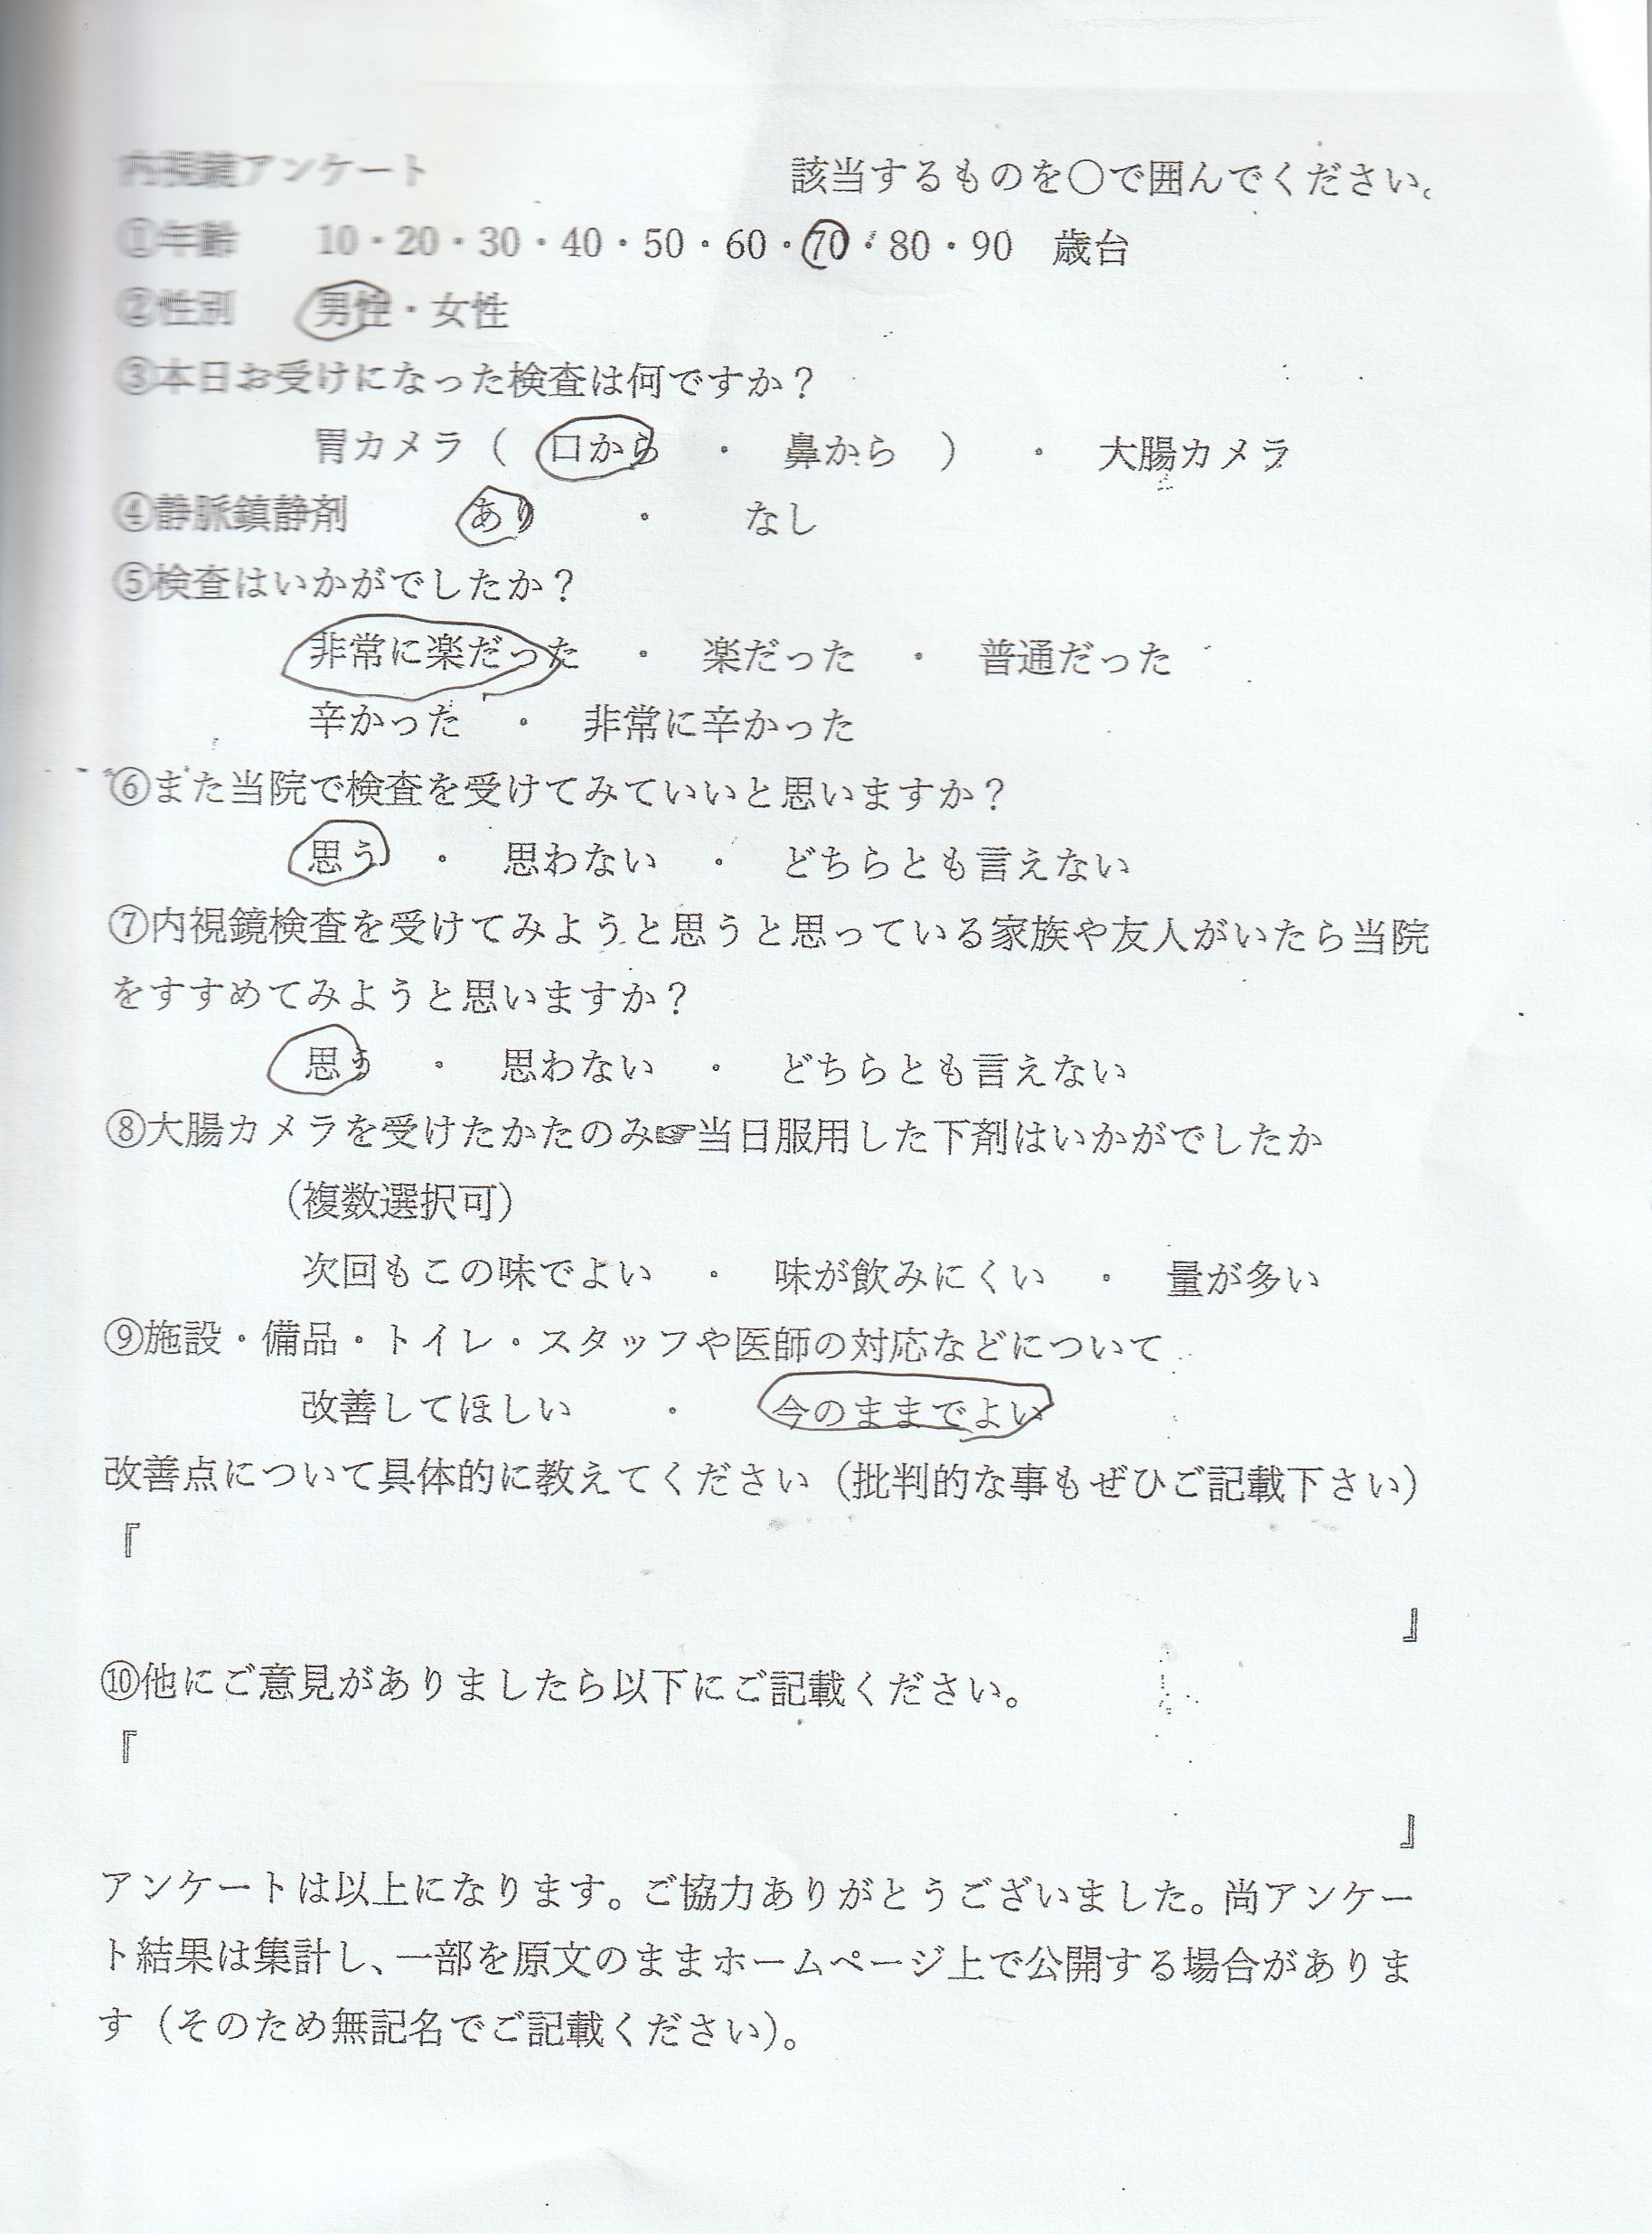 内視鏡アンケート　該当するものを〇で囲んでください。
①年齢　10・20・30・40・50・60・70・80・90　歳台
②性別　男性・女性
③本日お受けになった検査は何ですか？
胃カメラ（　口から　・　鼻から　）　・　大腸カメラ
④静脈鎮静剤　あり　・　なし
⑤検査はいかがでしたか？
非常に楽だった　・　楽だった　・　普通だった
辛かった　・　非常に辛かった
⑥また当院で検査を受けてみていいと思いますか？
思う　・　思わない　・　どちらとも言えない
⑦内視鏡検査を受けてみようと思うと思っている家族や友人がいたら当院
をすすめてみようと思いますか？
思う　・　思わない　・　どちらとも言えない
⑧大腸カメラを受けたかたのみ☞当日服用した下剤はいかがでしたか
（複数選択可）
次回もこの味でよい　・　味が飲みにくい　・　量が多い
⑨施設・備品・トイレ・スタッフや医師の対応などについて
改善してほしい　・　今のままでよい
改善点について具体的に教えてください（批判的な事もぜひご記載下さい）
『
』
⑩他にご意見がありましたら以下にご記載ください。
『
』
アンケートは以上になります。ご協力ありがとうございました。尚アンケー
ト結果は集計し、一部を原文のままホームページ上で公開する場合がありま
す（そのため無記名でご記載ください）。